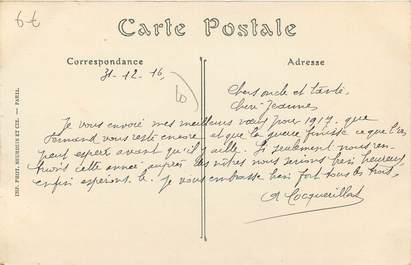 6€
Carte Postale
Correspondance
Adresse
31-12-16
Chers oncle et tante,
Cher Jeanne,
Je vous envoie mes meilleurs vœux pour 1917, que
Fernand vous reste encore et que la guerre finisse ce que l'on
peut espérer avant qu'il y aille. Si seulement nous
cette année auprès des vôtres nous serions bien heureux
enfin espérons le. Je vous embrasse bien fort tous les trois,
A Cocquerillat
IMP. PHOT. NEURDEIN ET CIE. — PARIS.